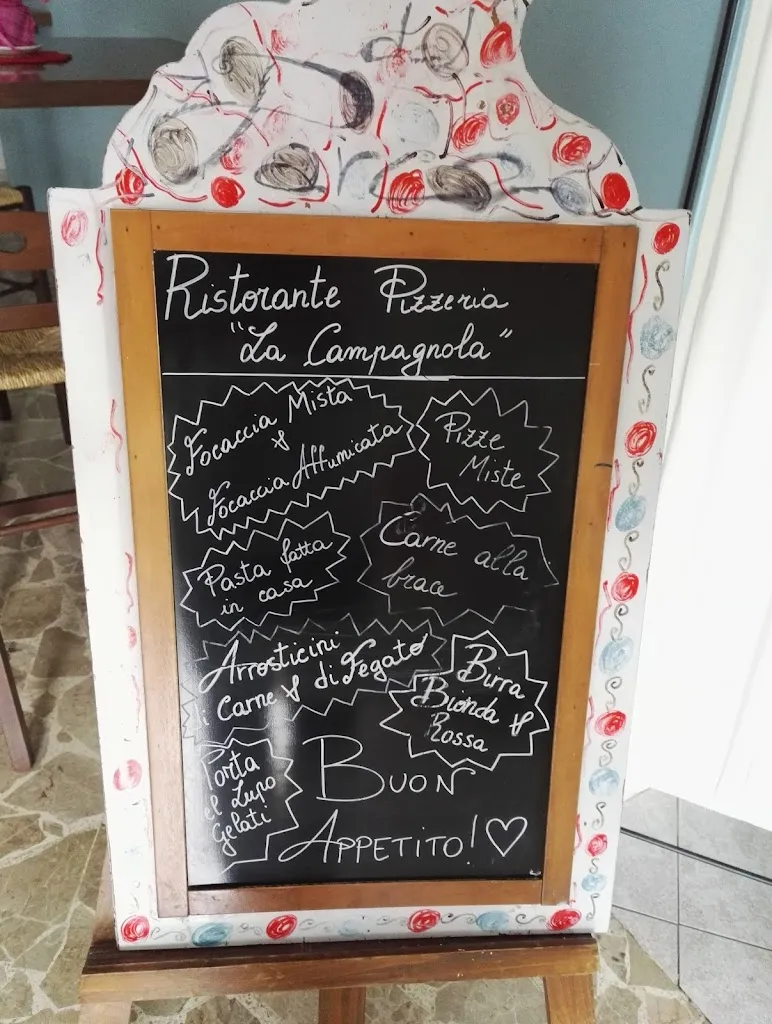 Ristorante Pizzeria
"La Campagnola"
Focaccia Mista
&
Focaccia Affumicata
Pizze
Miste
Pasta fatta
in casa
Carne alla
brace
Arrosticini
di Carne & di Fegato
Birra
Bionda &
Rossa
Torta
del Lupo
Gelati
Buon
Appetito! ♡